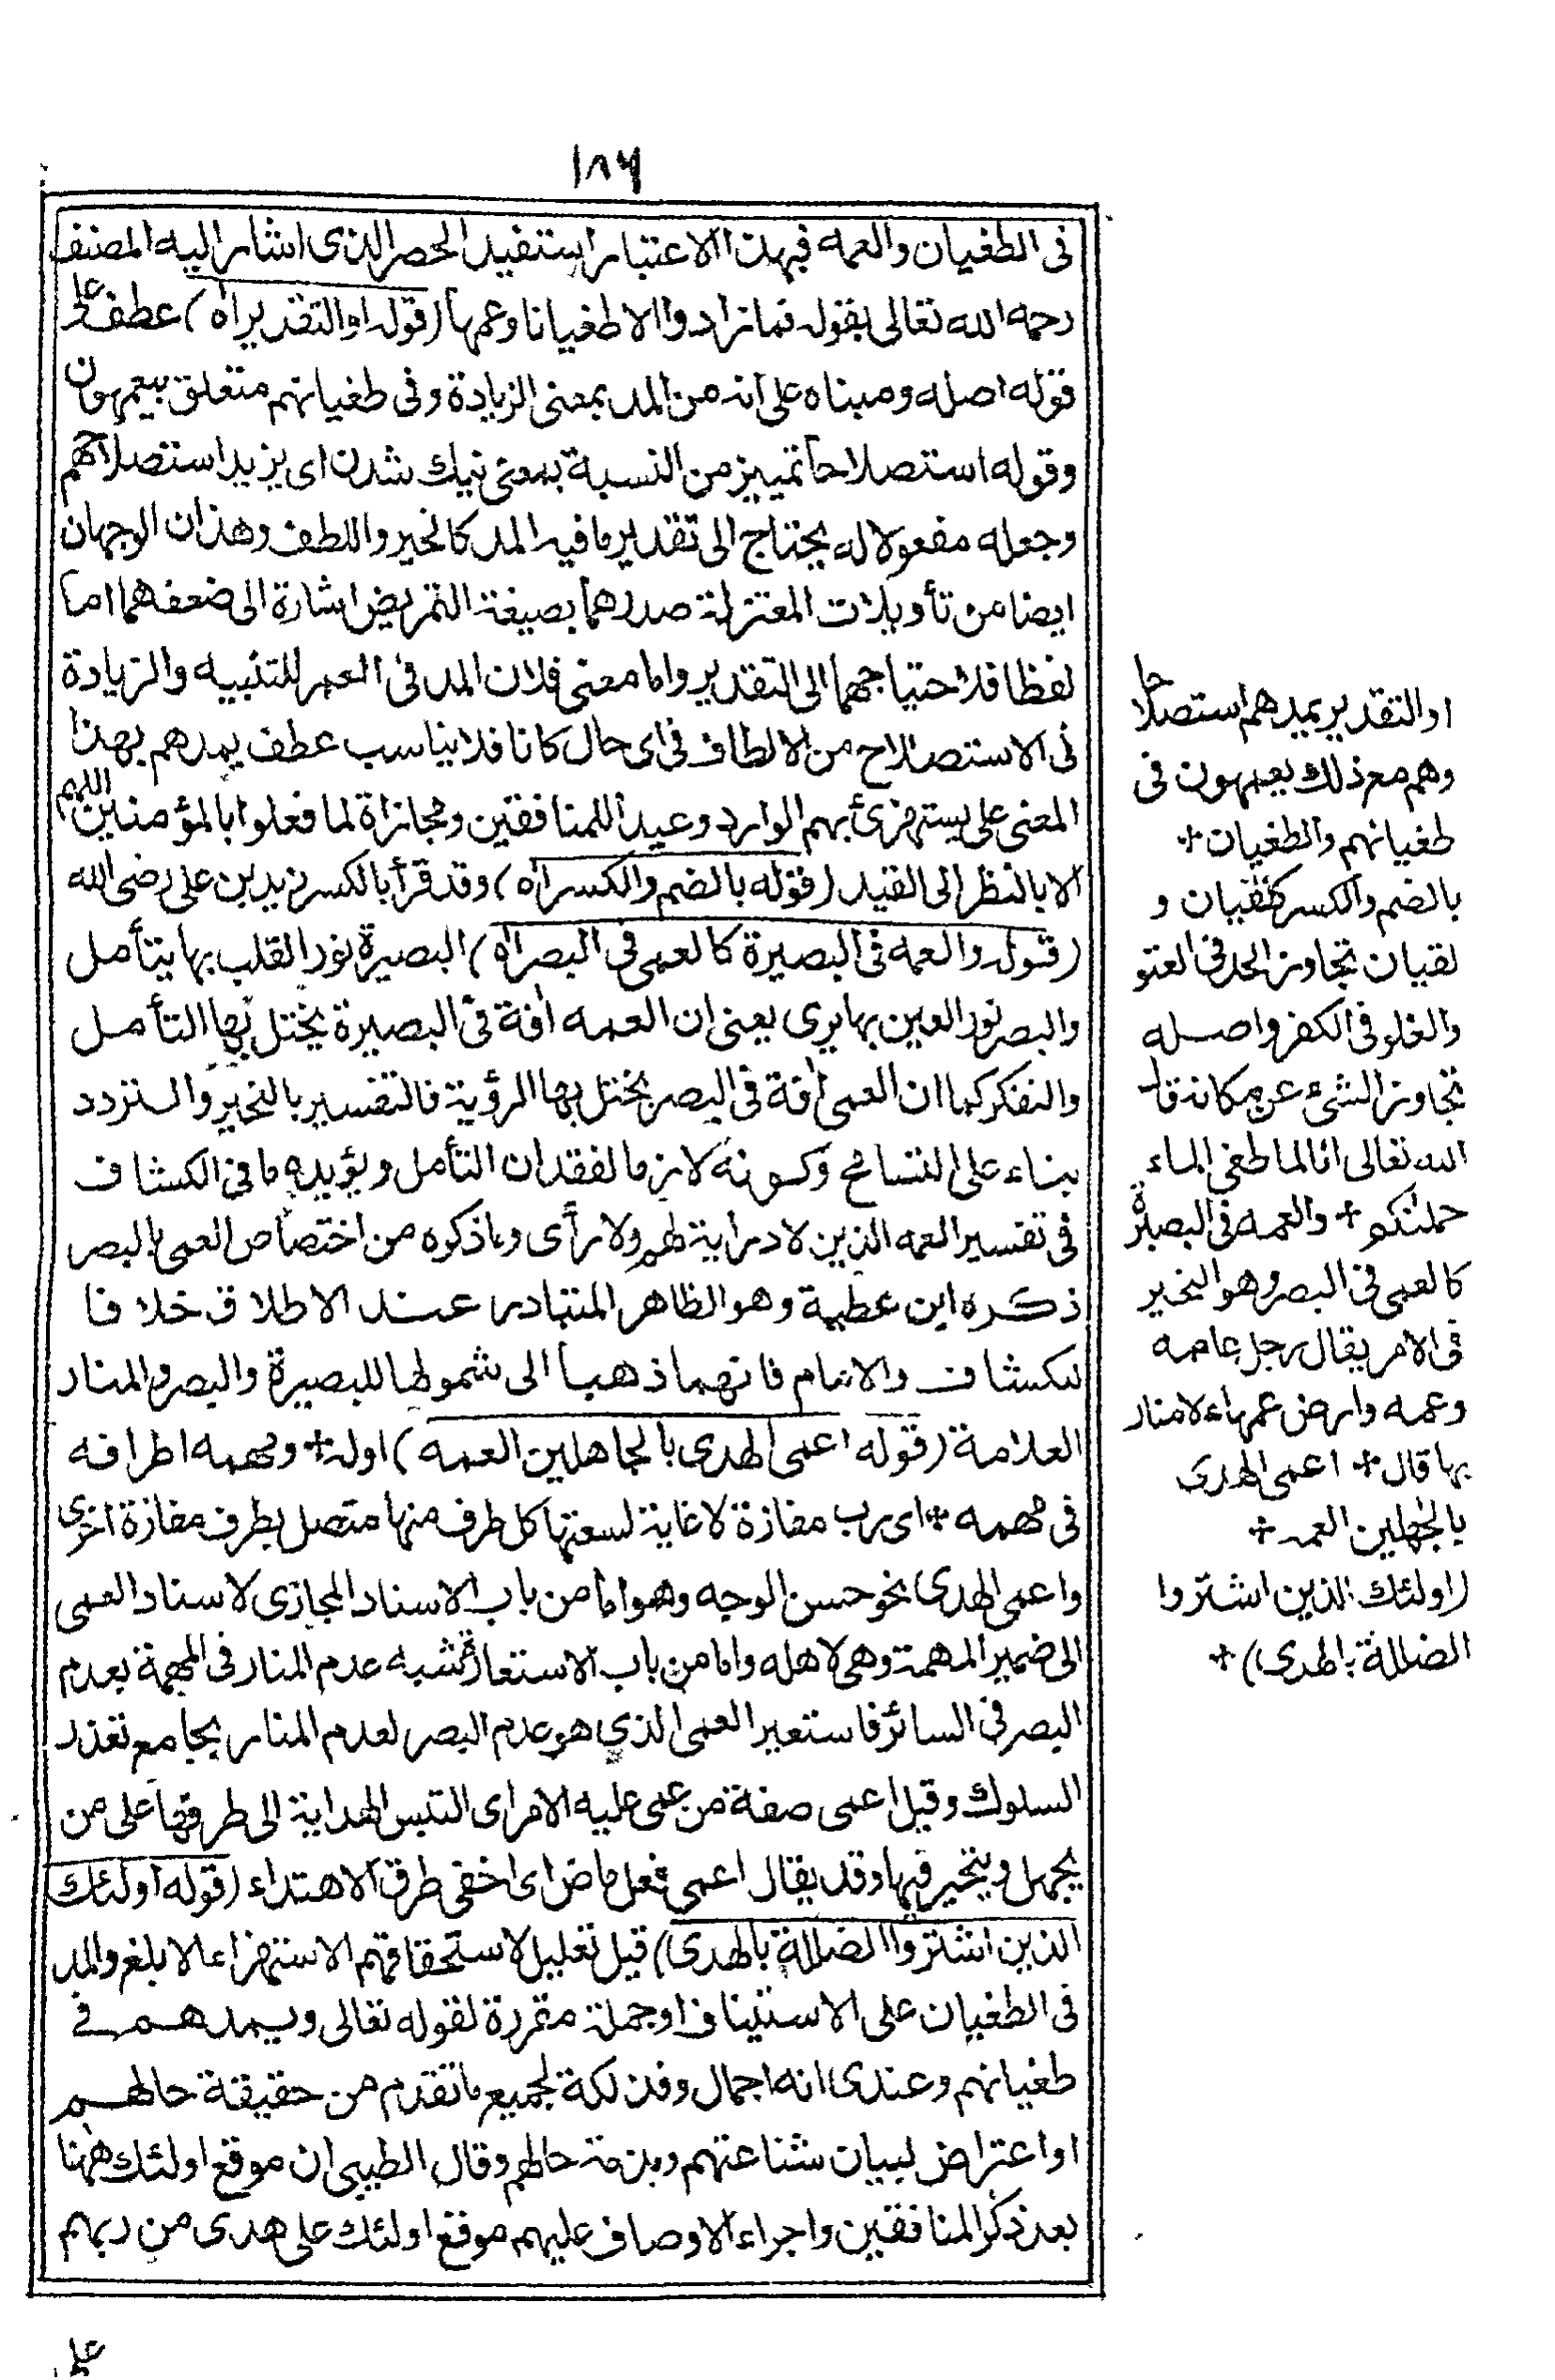 ١٨٦
فى الطغيان والعمه فبهذا الاعتبار استفيد الحصر الذى اشار اليه المصنف
رحمه الله تعالى بقوله فما زادوا الا طغيانا وعمها (قوله او التقدير اه) عطف على
قوله اصله ومبناه على انه من المد بمعنى الزيادة وفى طغيانهم متعلق بيعمهون
وقوله استصلاحا تمييز من النسبة بمعنى نيك شدن اى يزيد استصلاحهم
وجعله مفعولا له يحتاج الى تقدير ما فيه المد كالخير واللطف وهذان الوجهان
ايضا من تأويلات المعتزلة صدرهما بصيغة التمريض اشارة الى ضعفهما اما
لفظا فلاحتياجهما الى التقدير واما معنى فلان المد فى العمر للتنبيه والزيادة
فى الاستصلاح من الالطاف فى اى حال كانا فلا يناسب عطف يمدهم بهذا
المعنى على يستهزئ بهم الوارد وعيدا للمنافقين ومجازاة لما فعلوا بالمؤمنين اللهم
الا بالنظر الى القيد (قوله بالضم والكسر اه) وقد قرأ بالكسر زيد بن على رضى الله
(قوله والعمه فى البصيرة كالعمى فى البصر اه) البصيرة نور القلب بها يتأمل
والبصر نور العين بها يرى يعنى ان العمه افة فى البصيرة يختل بها التأمل
والتفكر كما ان العمى افة فى البصر يختل بها الرؤية فالتفسير بالتحير والتردد
بناء على التسامح وكونه لازما لفقدان التأمل ويؤيده ما فى الكشاف
فى تفسير العمه الذين لا دراية لهم ولا رأى وما ذكره من اختصاص العمى بالبصر
ذكره ابن عطية وهو الظاهر المتبادر عند الاطلاق خلافا
للكشاف والامام فانهما ذهبا الى شمولها للبصيرة والبصر والمنار
العلامة (قوله اعمى الهدى بالجاهلين العمه) اوله + ومهمه اطرافه
فى مهمه + اى رب مفازة لا غاية لسعتها كل طرف منها متصل بطرف مفازة اخرى
واعمى الهدى نحو حسن الوجه وهو اما من باب الاسناد المجازى لاسناد العمى
الى ضمير المهمة وهى لاهله واما من باب الاستعارة شبه عدم المنار فى المهمة بعدم
البصر فى السائر فاستعير العمى الذى هو عدم البصر لعدم المنار بجامع تعذر
السلوك وقيل اعمى صفة من عمى عليه الامر اى التبس الهداية الى طرقها على من
يجهل ويتحير فيها وقد يقال اعمى فعل ماض اى اخفى طرق الاهتداء (قوله اولئك
الذين اشتروا الضلالة بالهدى) قيل تعليل لاستحقاقهم الاستهزاء الابلغ والمد
فى الطغيان على الاستيناف او جملة مقررة لقوله تعالى ويمدهم فى
طغيانهم وعندى انه اجمال وفذلكة لجميع ما تقدم من حقيقة حالهم
او اعتراض لبيان شناعتهم وبذمة حالهم وقال الطيبى ان موقع اولئك ههنا
بعد ذكر المنافقين واجراء الاوصاف عليهم موقع اولئك على هدى من ربهم
على
او التقدير يمدهم استصلاحا
وهم مع ذلك يعمهون فى
طغيانهم والطغيان +
بالضم والكسر كلقيان و
لقيان تجاوز الحد فى العتو
والغلو فى الكفر واصله
تجاوز الشئ عن مكانه قال
الله تعالى انا لما طغى الماء
حملنكم + والعمه فى البصيرة
كالعمى فى البصر وهو التحير
فى الامر يقال رجل عامه
وعمه وارض عمهاء لا منار
بها قال + اعمى الهدى
بالجهلين العمه +
(اولئك الذين اشتروا
الضللة بالهدى) +